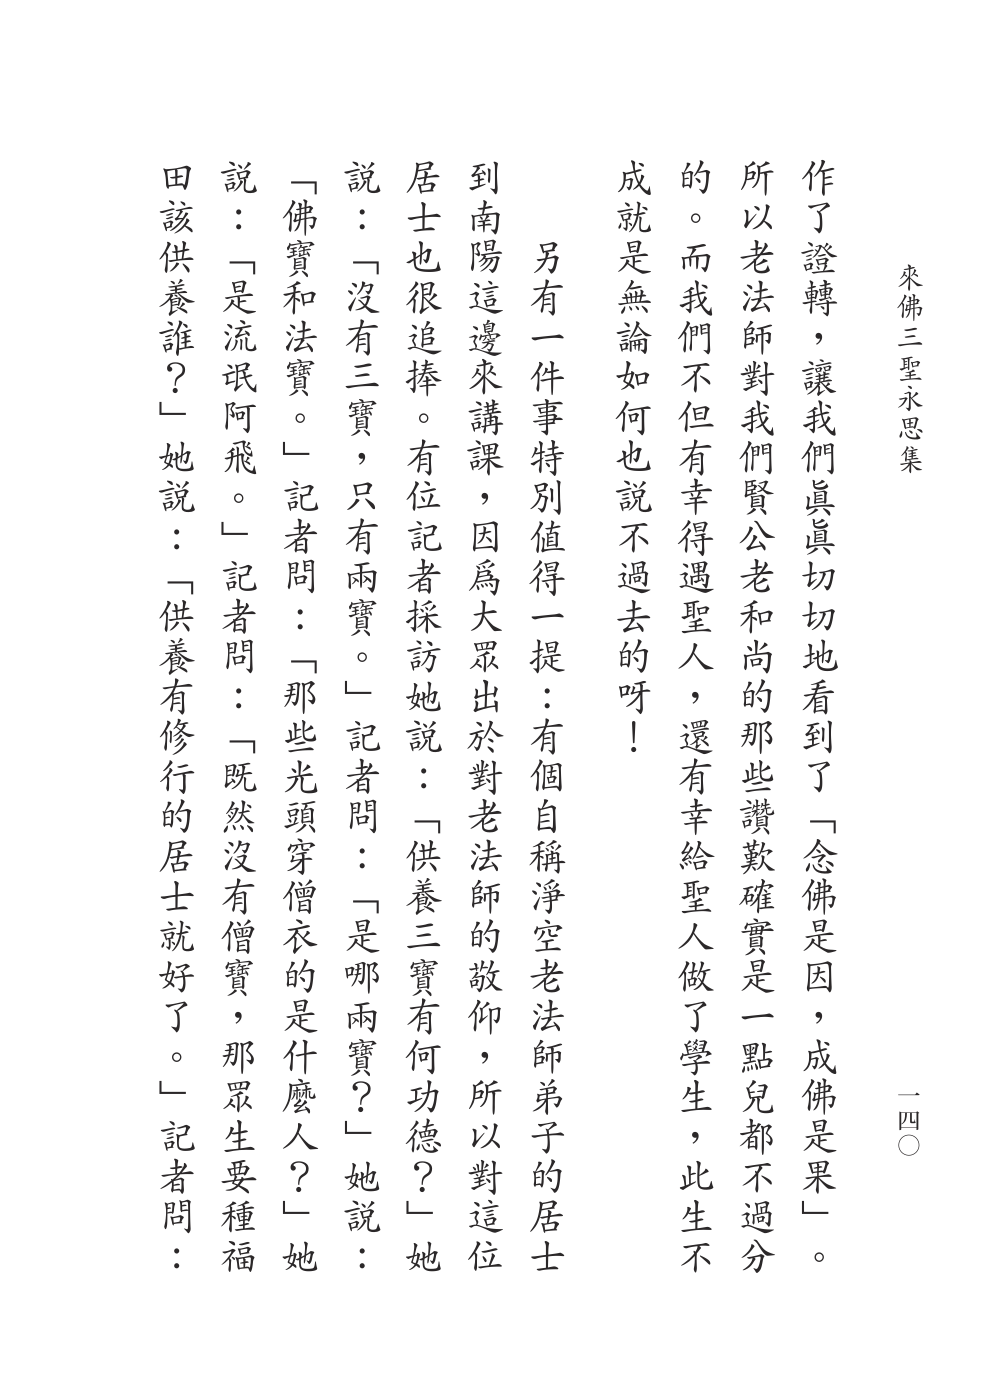 來佛三聖永思集
一四〇
作了證轉，讓我們眞眞切切地看到了「念佛是因，成佛是果」。
所以老法師對我們賢公老和尚的那些讚歎確實是一點兒都不過分
的。而我們不但有幸得遇聖人，還有幸給聖人做了學生，此生不
成就是無論如何也説不過去的呀！
另有一件事特別值得一提：有個自稱淨空老法師弟子的居士
到南陽這邊來講課，因爲大眾出於對老法師的敬仰，所以對這位
居士也很追捧。有位記者採訪她説：「供養三寶有何功德？」她
説：「沒有三寶，只有兩寶。」記者問：「是哪兩寶？」她説：
「佛寶和法寶。」記者問：「那些光頭穿僧衣的是什麼人？」她
説：「是流氓阿飛。」記者問：「既然沒有僧寶，那眾生要種福
田該供養誰？」她説：「供養有修行的居士就好了。」記者問：